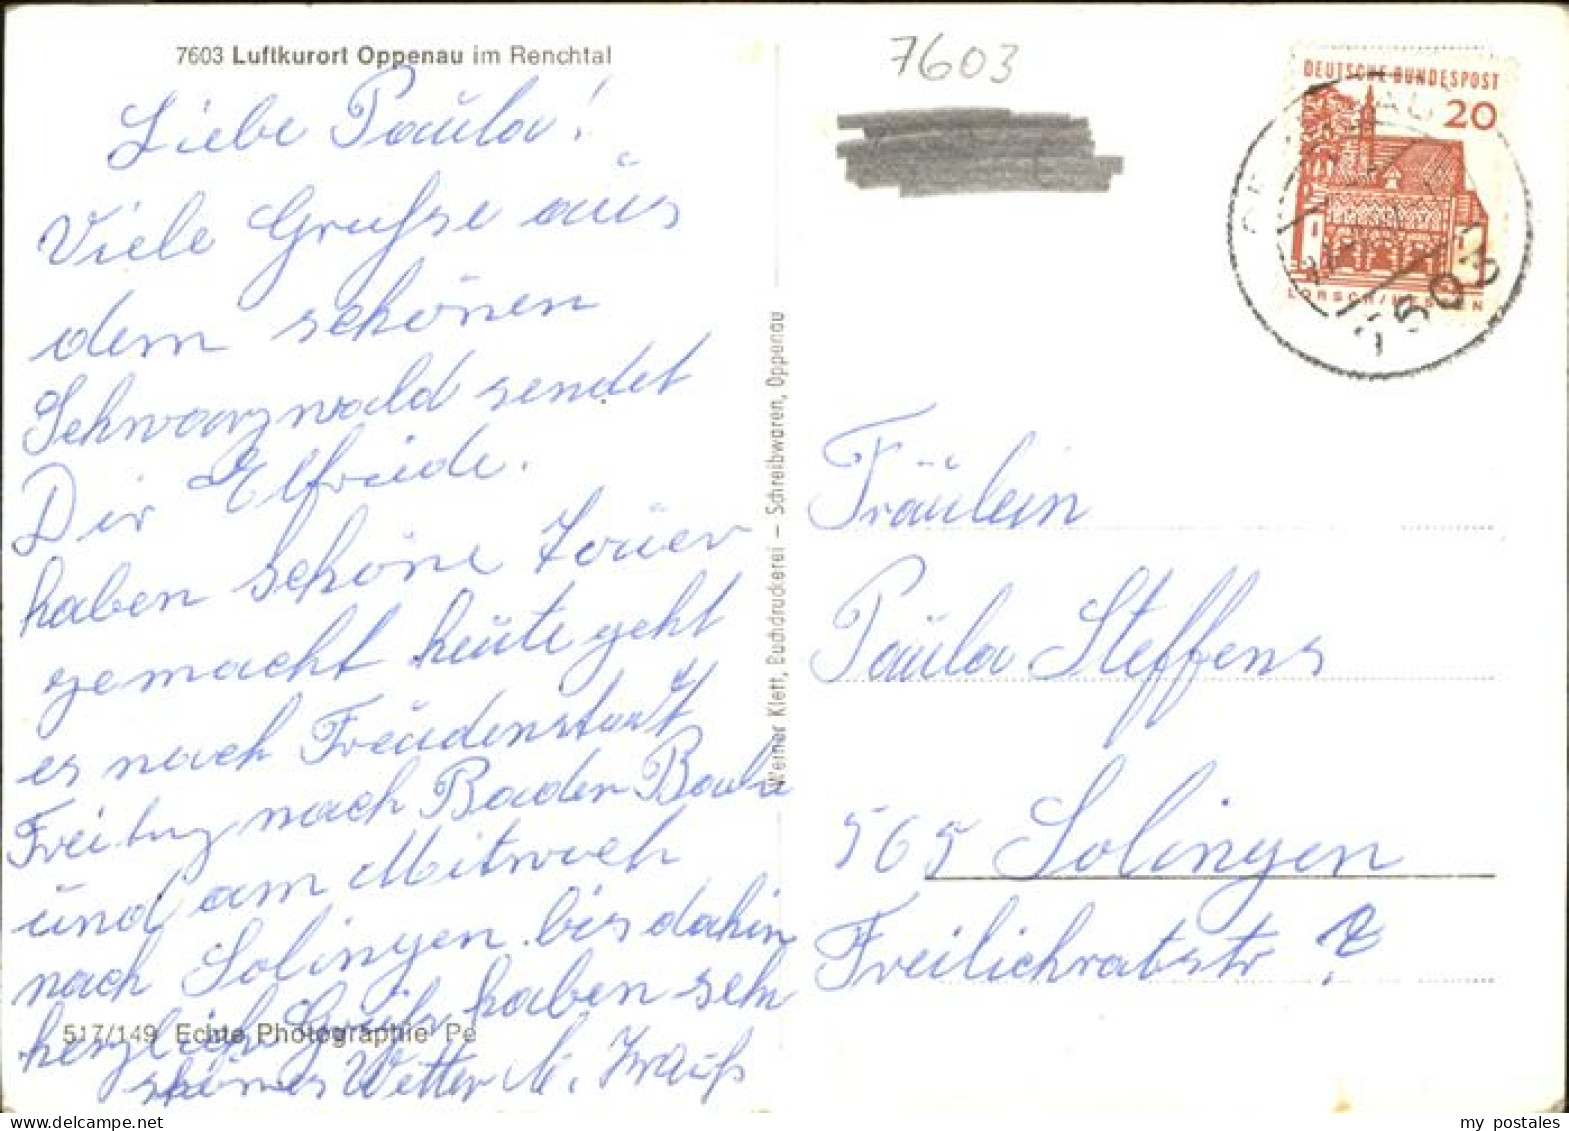 7603 Luftkurort Oppenau im Renchtal
Liebe Paula!
Viele Grüsse aus
dem schönen
Schwarzwald sendet
Dir Elfriede.
haben schöne Touer
gemacht heute geht
es nach Freudenstadt
Freiburg nach Baden Baden
und am Mitwoch
nach Solingen bis dahin
herzlich Gruß haben sehr
schönes Wetter
517/149 Echte Photographie Pe
Werner Klett, Buchdruckerei – Schreibwaren, Oppenau
7603
DEUTSCHE BUNDESPOST
20
LORSCH/HESSEN
7603
Fräulein
Paula Steffens
565 Solingen
Freilichratstr
my postales